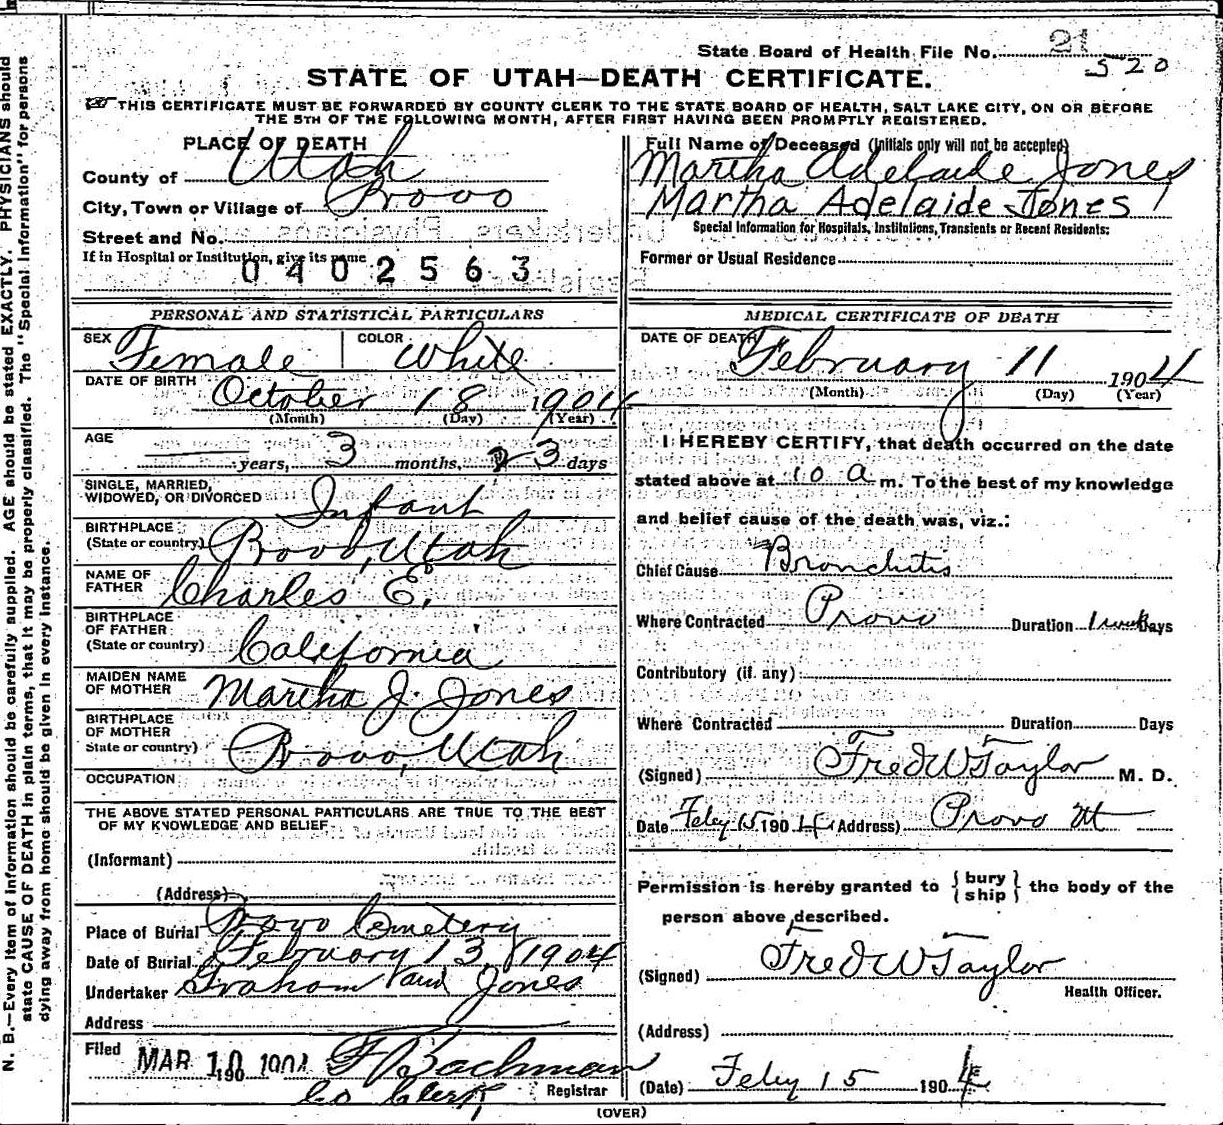 State Board of Health File No. 21
520
STATE OF UTAH—DEATH CERTIFICATE.
THIS CERTIFICATE MUST BE FORWARDED BY COUNTY CLERK TO THE STATE BOARD OF HEALTH, SALT LAKE CITY, ON OR BEFORE
THE 5TH OF THE FOLLOWING MONTH, AFTER FIRST HAVING BEEN PROMPTLY REGISTERED.
PLACE OF DEATH
County of Utah
City, Town or Village of Provo
Street and No.
If in Hospital or Institution, give its name
0402563
Full Name of Deceased (Initials only will not be accepted)
Martha Adelaide Jones
Martha Adelaide Jones
Special Information for Hospitals, Institutions, Transients or Recent Residents:
Former or Usual Residence
PERSONAL AND STATISTICAL PARTICULARS
SEX Female COLOR White
DATE OF BIRTH October 18 1904
(Month) (Day) (Year)
AGE
years, 3 months, 23 days
SINGLE, MARRIED,
WIDOWED, OR DIVORCED Infant
BIRTHPLACE
(State or country) Provo, Utah
NAME OF
FATHER Charles E.
BIRTHPLACE
OF FATHER
(State or country) California
MAIDEN NAME
OF MOTHER Martha J. Jones
BIRTHPLACE
OF MOTHER
State or country) Provo, Utah
OCCUPATION
THE ABOVE STATED PERSONAL PARTICULARS ARE TRUE TO THE BEST
OF MY KNOWLEDGE AND BELIEF
(Informant)
(Address)
Place of Burial Provo Cemetery
Date of Burial February 13, 1904
Undertaker Graham and Jones
Address
Filed MAR 10 1904 190 F Bachman
Co Clerk, Registrar
MEDICAL CERTIFICATE OF DEATH
DATE OF DEATH February 11 1904
(Month) (Day) (Year)
I HEREBY CERTIFY, that death occurred on the date
stated above at 10 a m. To the best of my knowledge
and belief cause of the death was, viz.:
Chief Cause Bronchitis
Where Contracted Provo Duration 1 week Days
Contributory (if any)
Where Contracted Duration Days
(Signed) Fred W Taylor M. D.
Date Feby 15 1904 (Address) Provo Ut
Permission is hereby granted to { bury
ship } the body of the
person above described.
(Signed) Fred W Taylor
Health Officer.
(Address)
(Date) Feby 15 1904
(OVER)
N. B.—Every item of information should be carefully supplied. AGE should be stated EXACTLY. PHYSICIANS should
state CAUSE OF DEATH in plain terms, that it may be properly classified. The "Special Information" for persons
dying away from home should be given in every instance.